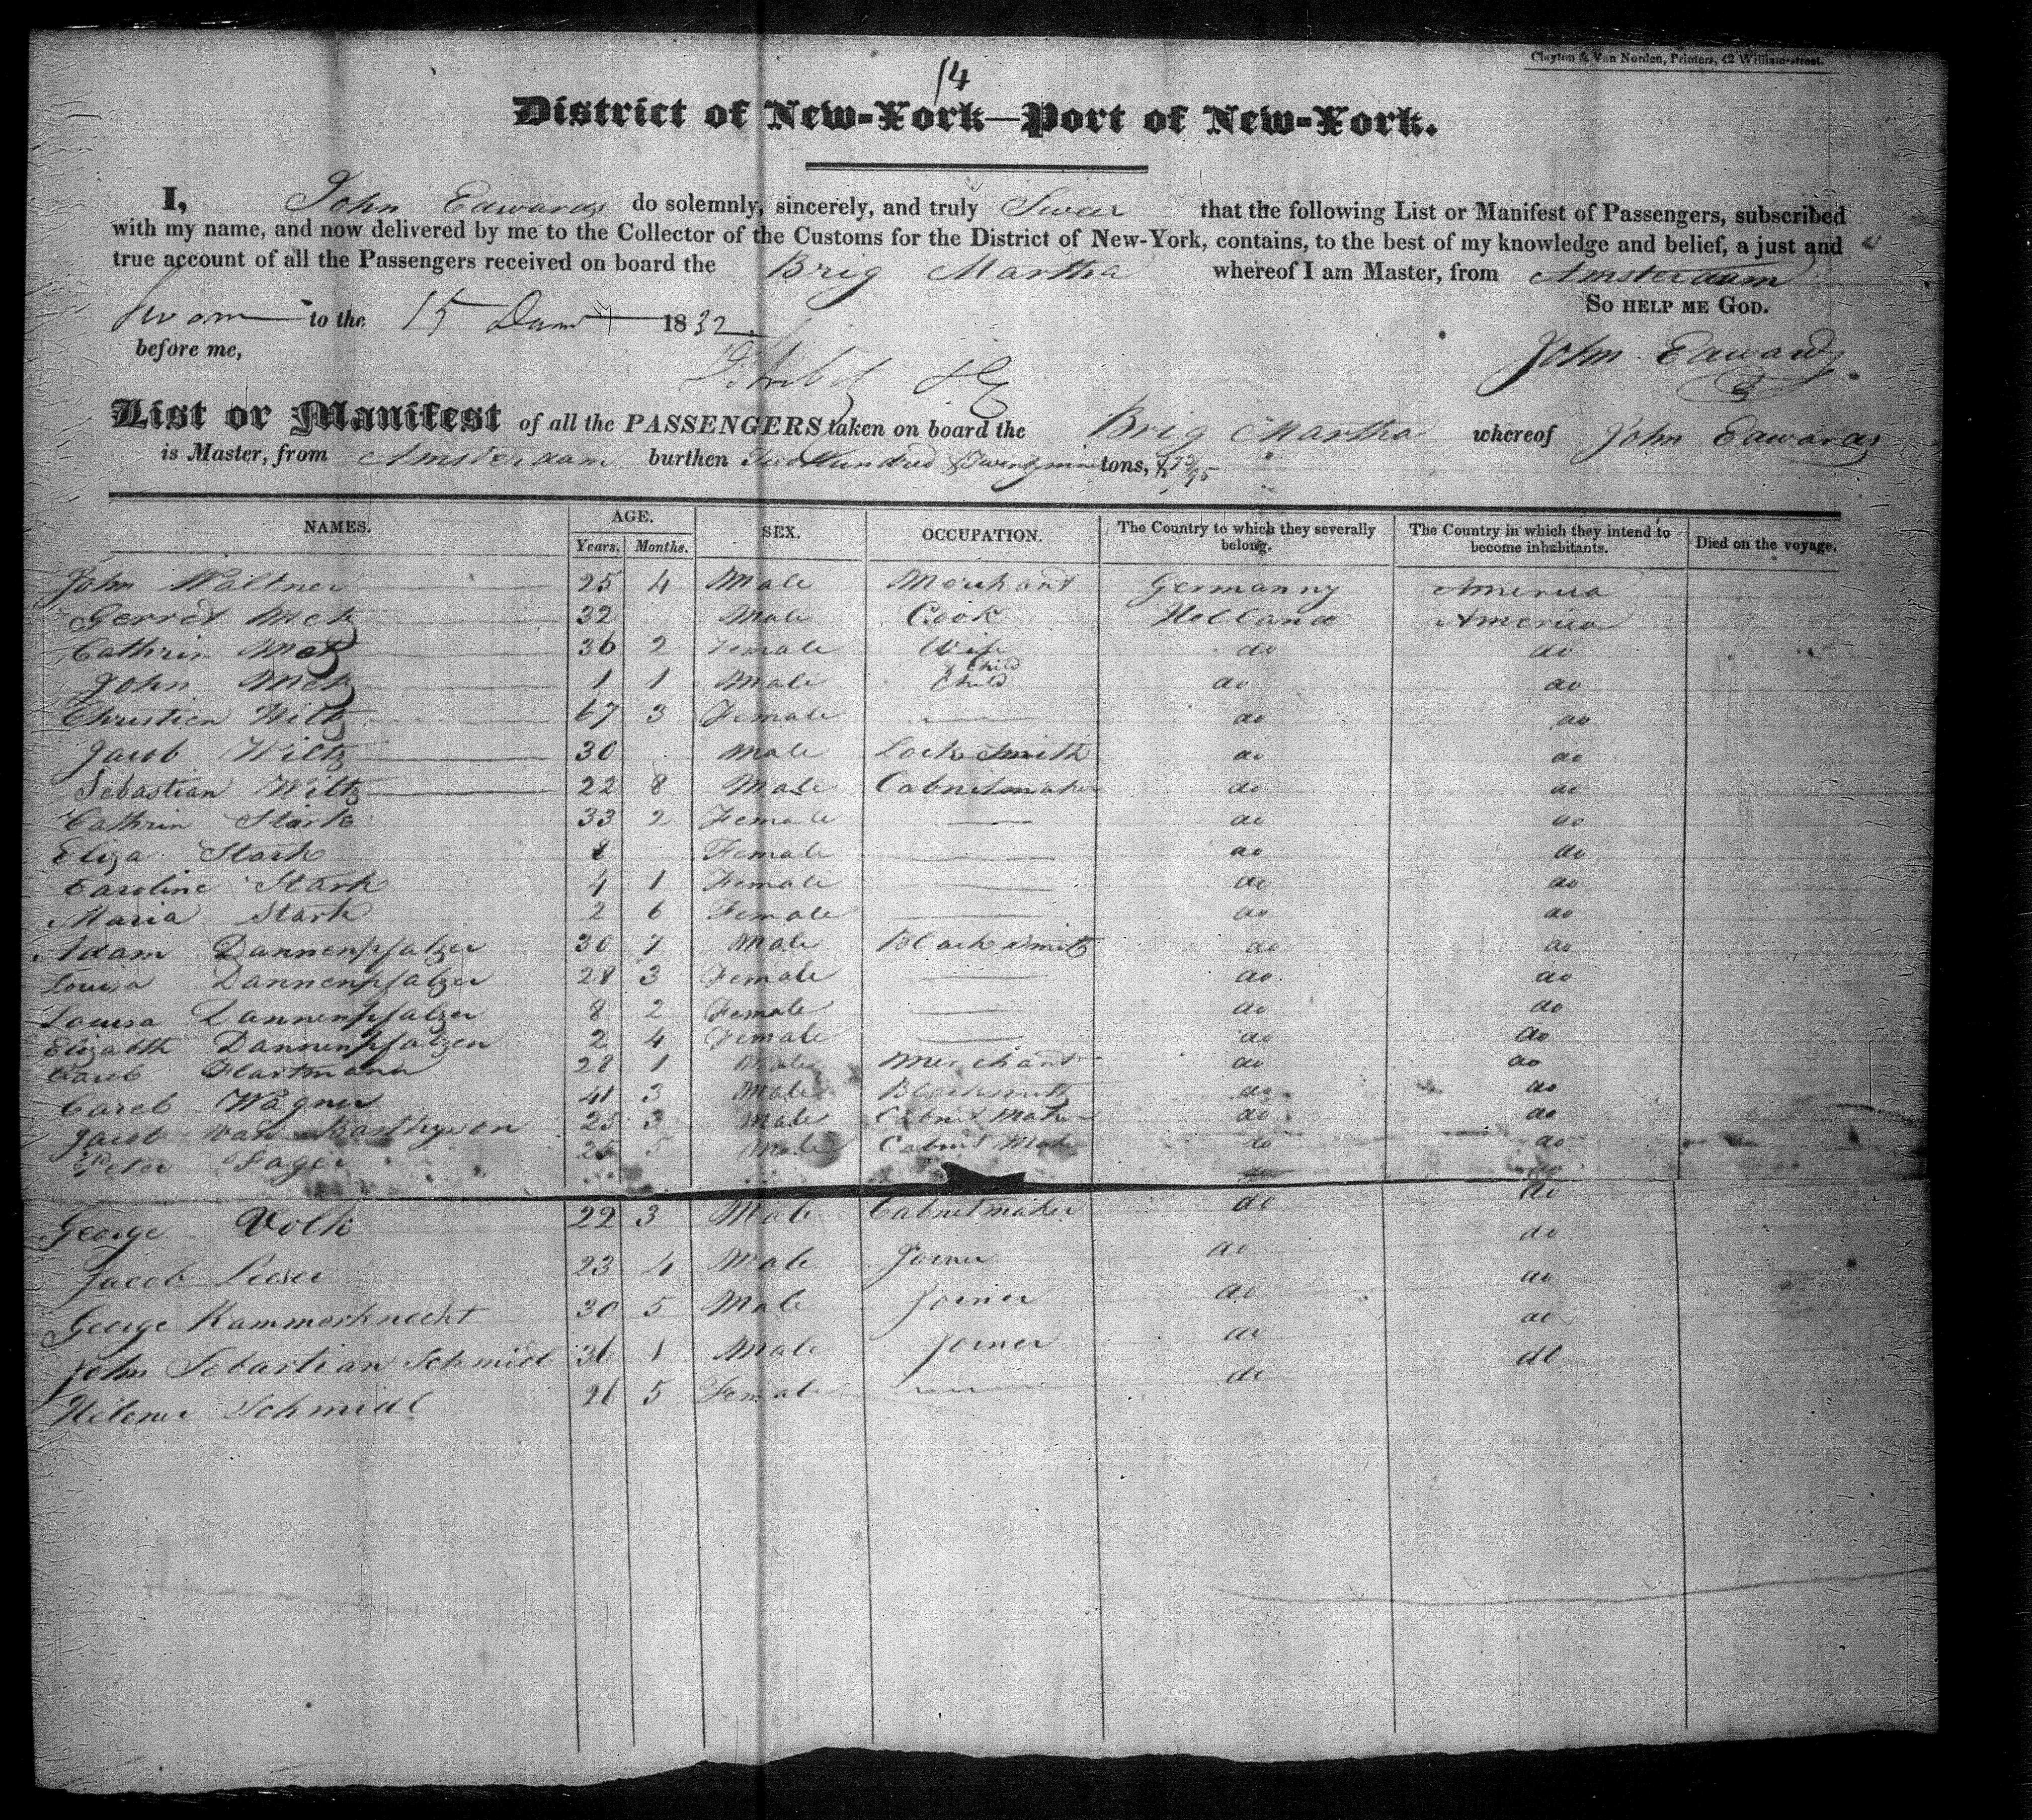 Clayton & Van Norden, Printers, 42 William-street.
14
District of New-York—Port of New-York.
I, John Edwards do solemnly, sincerely, and truly Swear that the following List or Manifest of Passengers, subscribed
with my name, and now delivered by me to the Collector of the Customs for the District of New-York, contains, to the best of my knowledge and belief, a just and
true account of all the Passengers received on board the Brig Martha whereof I am Master, from Amsterdam
Sworn to the 15 1832 So help me God.
before me,
John Edwards
List or Manifest of all the PASSENGERS taken on board the Brig Martha whereof John Edwards
is Master, from Amsterdam burthen Two Hundred & Twenty nine tons, & 73/95
NAMES. AGE. SEX. OCCUPATION. The Country to which they severally belong. The Country in which they intend to become inhabitants. Died on the voyage.
Years. Months.
John Waltner 25 4 Male Merchant Germanny America
Gerret Metz 32 Male Cook Holland America
Cathrin Metz 36 2 Female Wife do do
John Metz 1 1 Male Child Child do do
Christien Wiltz 67 3 Female do do
Jacob Wiltz 30 Male Lock Smith do do
Sebastian Wiltz 22 8 Male Cabnetmaker do do
Cathrin Stark 33 2 Female do do
Eliza Stark 8 Female do do
Caroline Stark 4 1 Female do do
Maria Stark 2 6 Female do do
Adam Dannenpfalzer 30 7 Male Black Smith do do
Louisa Dannenpfalzer 28 3 Female do do
Louisa Dannenpfalzer 8 2 Female do do
Elizabth Dannenpfalzer 2 4 Female do do
Hartmann 28 1 Male Merchant do do
Careb Wagner 41 3 Male Blacksmith do do
Jacob van 25 3 Male Cabnet Maker do do
Peter Sager 25 5 Male Cabnet Maker do do
do do
George Volk 22 3 Male Cabnetmaker do do
Jacob Leeser 23 4 Male Joiner do do
George Kammerknecht 30 5 Male Joiner do do
John Sebastian Schmidt 36 1 Male Joiner do do
Helener Schmidt 26 5 Female do do